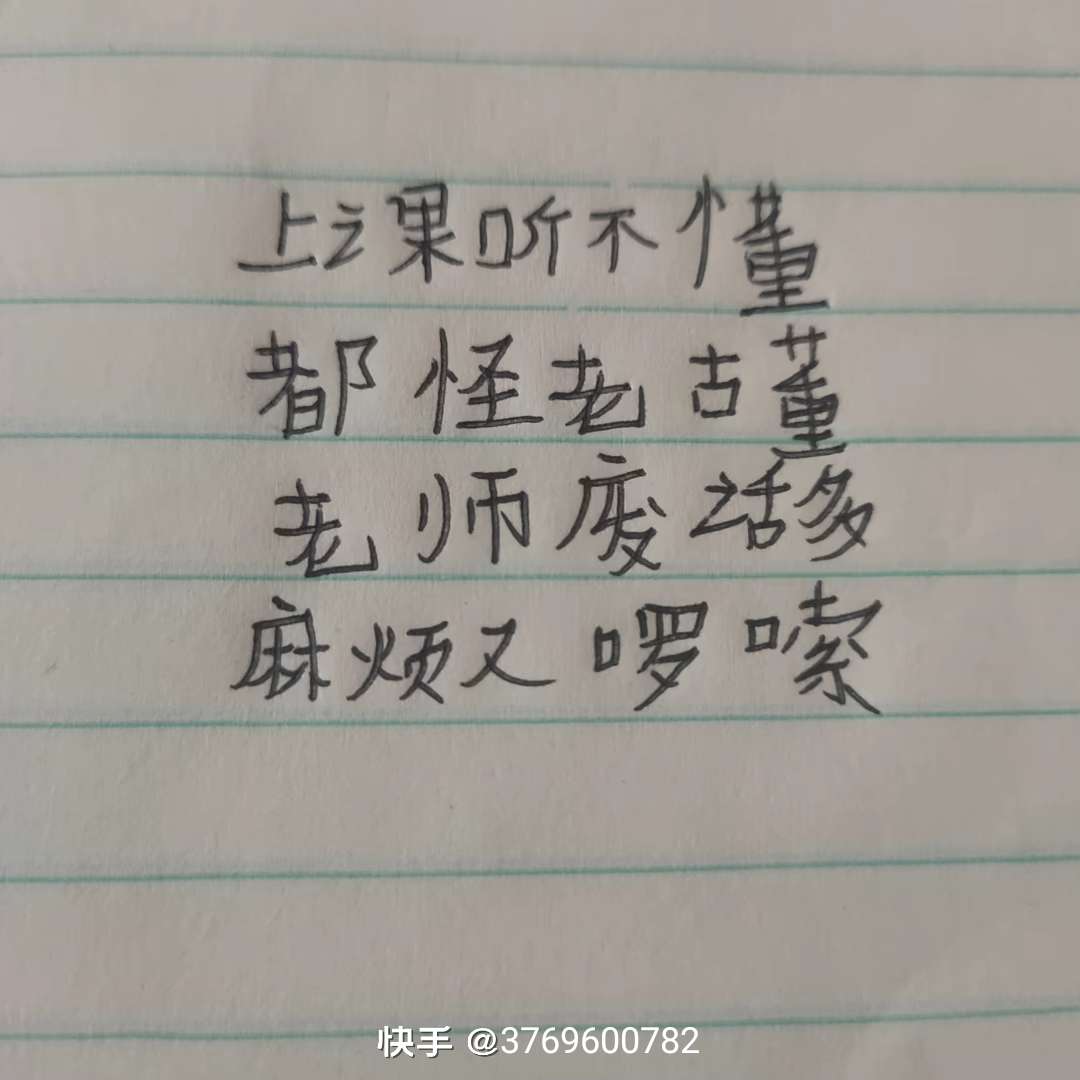 上课听不懂
都怪老古董
老师废话多
麻烦又啰嗦
快手 @3769600782